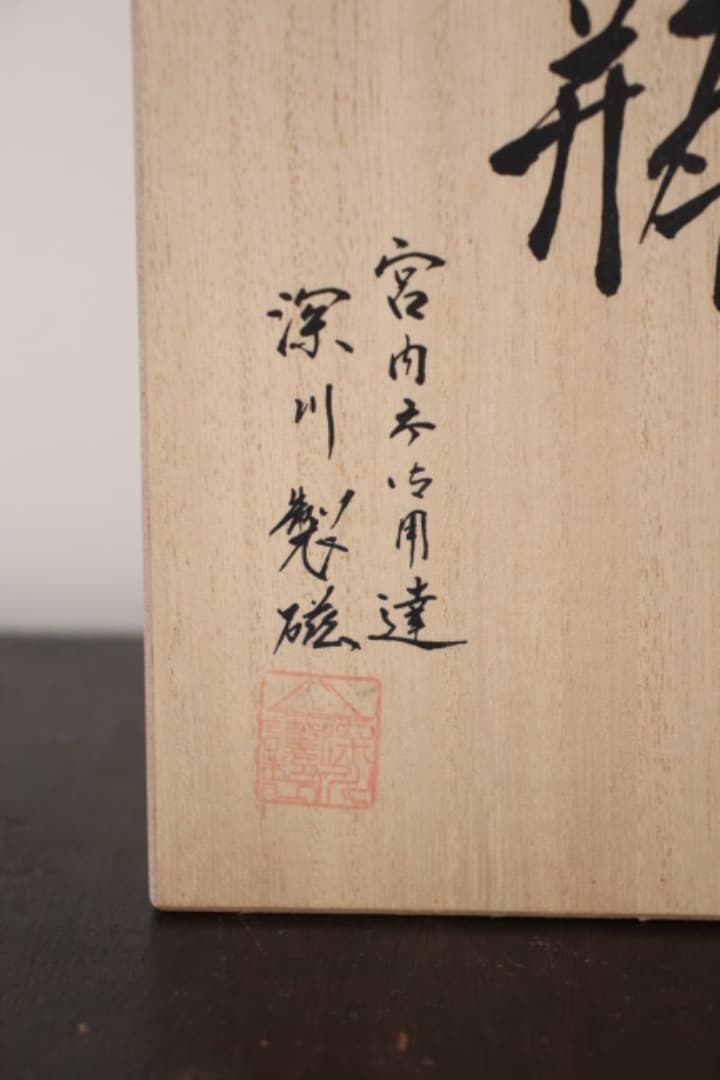 瓶
宮内庁御用達
深川製磁